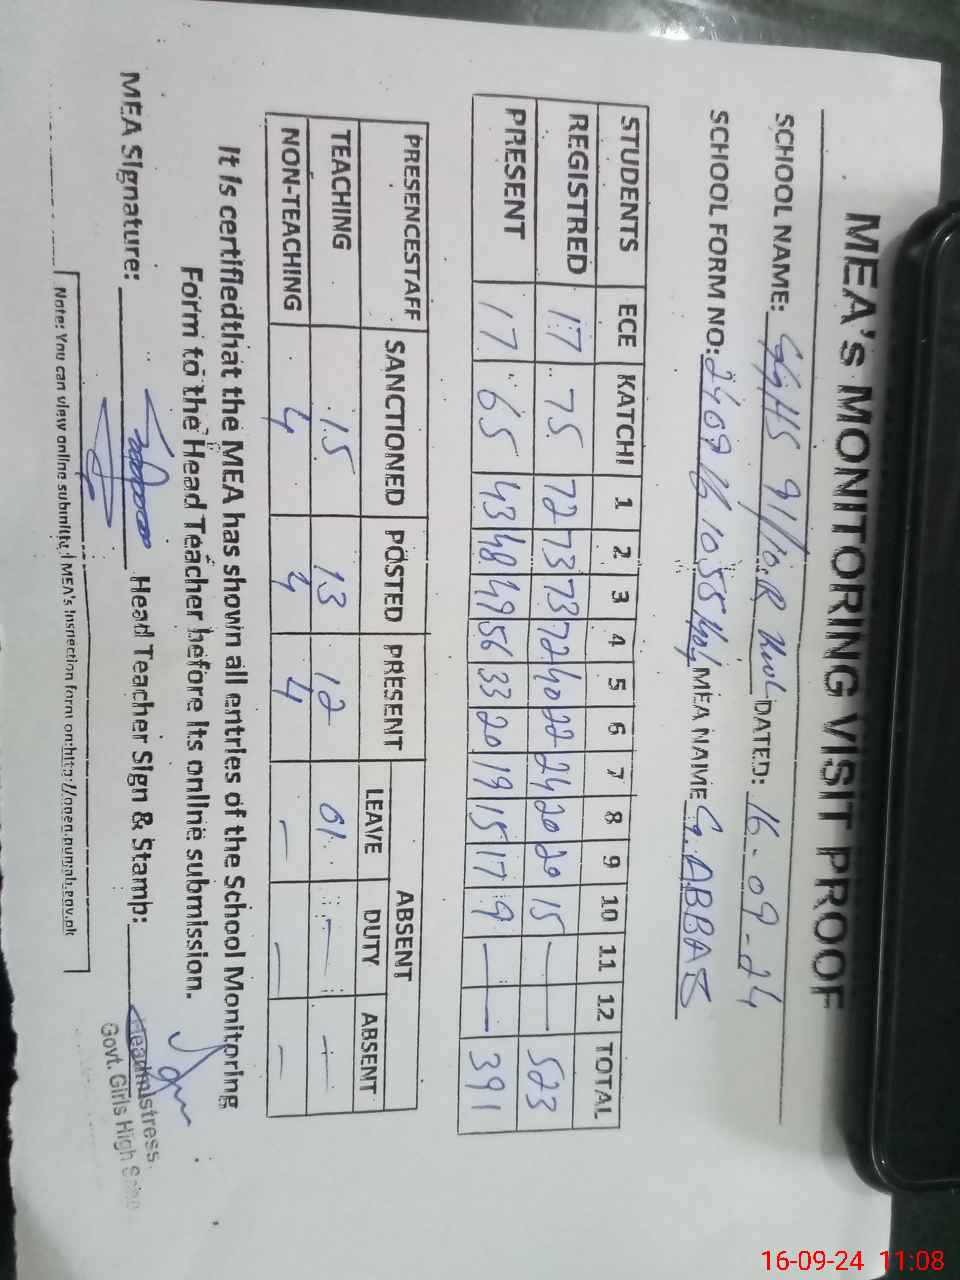 MEA's MONITORING VISIT PROOF
SCHOOL NAME: GGHS 91/10.R DATED: 16-09-24
SCHOOL FORM NO: MEA NAME G. ABBAS
STUDENTS ECE KATCHI 1 2 3 4 5 6 7 8 9 10 11 12 TOTAL
REGISTRED 17 75 72 73 73 72 40 22 24 20 20 15 — — 523
PRESENT 17 65 43 48 49 56 33 20 19 15 17 9 — — 391
PRESENCESTAFF SANCTIONED POSTED PRESENT ABSENT
LEAVE DUTY ABSENT
TEACHING 15 13 12 01 — —
NON-TEACHING 4 4 4 — — —
It is certifiedthat the MEA has shown all entries of the School Monitoring
Form to the Head Teacher before its online submission.
MEA Signature: Head Teacher Sign & Stamp:
Headmistress
Govt. Girls High
Note: You can view online submitted MEA's Inspection form on:http://open.punjab.gov.pk
16-09-24 11:08